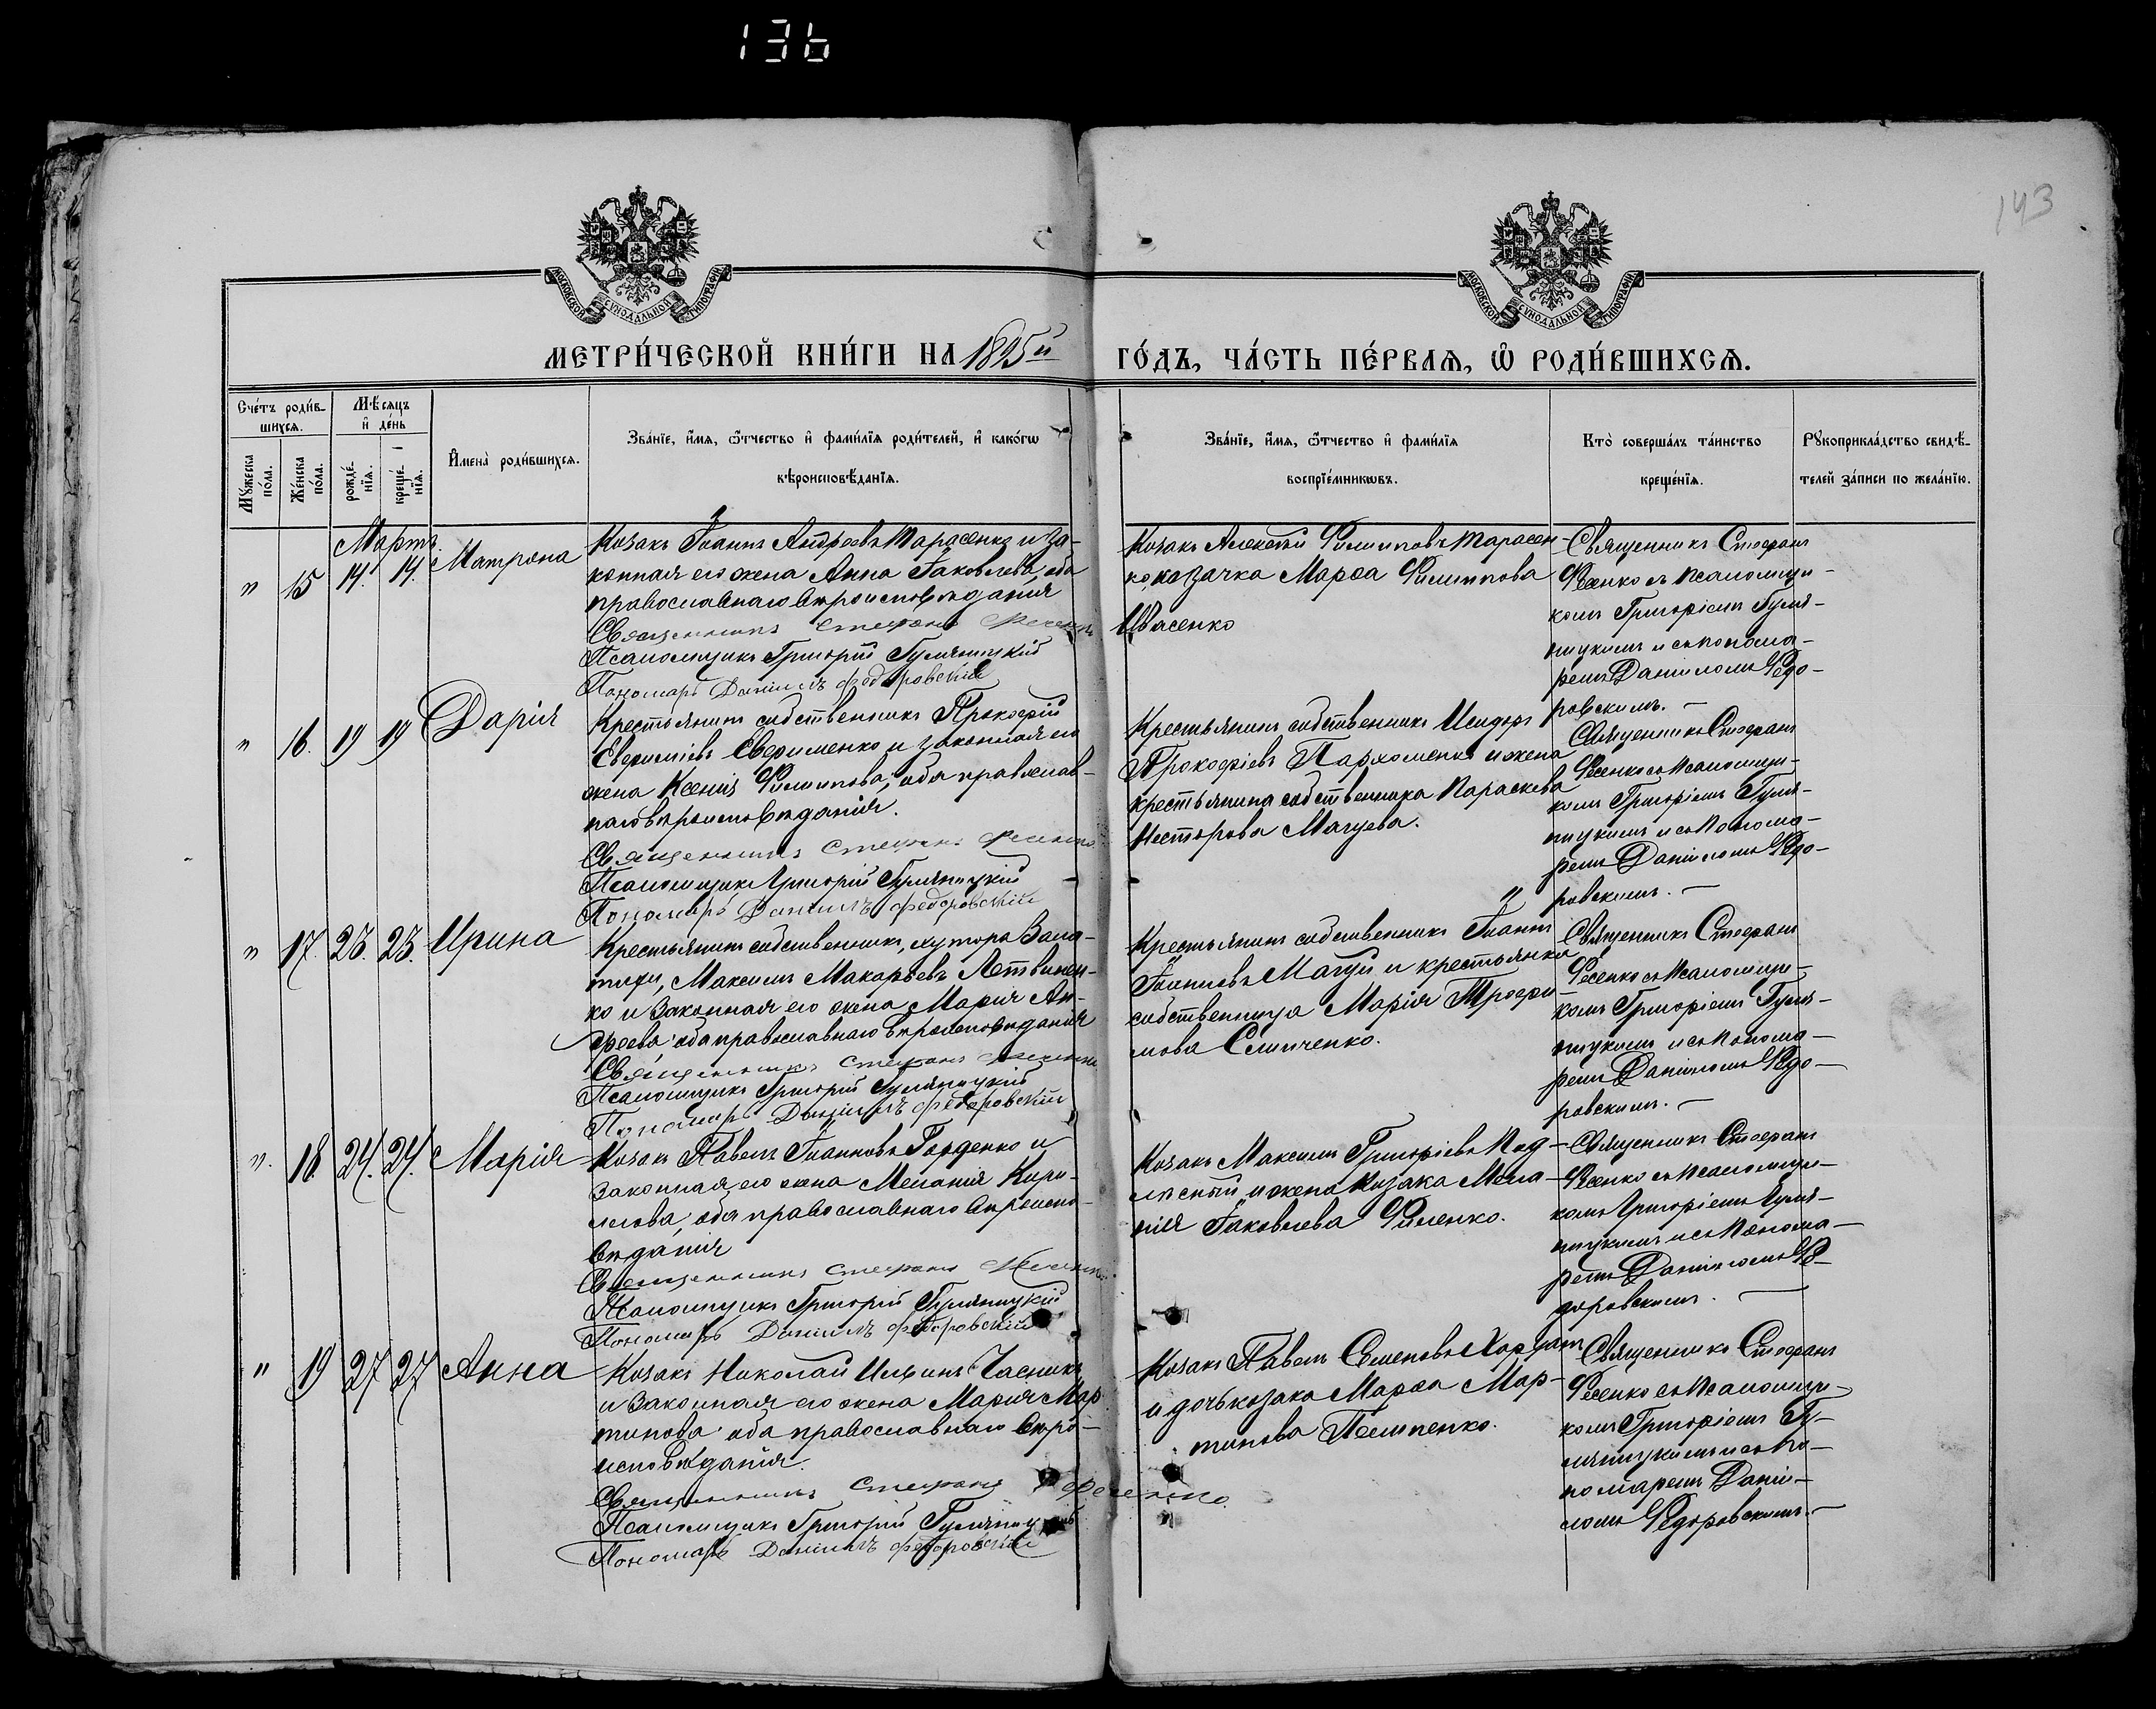 136
143
МОСКОВСКОЙ СѴНОДАЛЬНОЙ ТИПОГРАФІИ
МОСКОВСКОЙ СѴНОДАЛЬНОЙ ТИПОГРАФІИ
МЕТРИ́ЧЕСКОЙ КНИ́ГИ НА 1895й ГО́ДЪ, ЧА́СТЬ ПЕ́РВАѦ, Ѿ РОДИ́ВШИХСѦ.
Сче́тъ роди́в-
шихсѧ.
Мꙋ́жеска
по́ла.
Же́нска
по́ла.
Мѣ́сѧцъ
и҆ де́нь
рожде́-
нїѧ.
креще́-
нїѧ.
И҆мена̀ роди́вшихсѧ.
Зва́нїе, и҆́мѧ, ѻ҆́тчество и҆ фами́лїѧ роди́телей, и҆ како́гѡ
вѣроисповѣ́данїѧ.
Зва́нїе, и҆́мѧ, ѻ҆́тчество и҆ фами́лїѧ
воспрїе́мникѡвъ.
Кто̀ соверша́лъ та́инство
креще́нїѧ.
Рꙋкоприкла́дство свидѣ́-
телей за́писи по жела́нїю.
Мартъ
" 15 14. 14. Матрона
Козакъ Іоаннъ Андреевъ Тарасенко и за-
конная его жена Анна Іаковлева, оба
православнаго вѣроисповѣданія
Священникъ Стефанъ Фесенко
Псаломщикъ Григорій Гуляницкій
Пономарь Даніилъ Федоровскій
Козакъ Алексѣй Филипповъ Тарасен-
ко, козачка Марѳа Филиппова
Ивасенко
Священникъ Стефанъ
Фесенко съ псаломщи-
комъ Григоріемъ Гуля-
ницкимъ и съ понома-
ремъ Даніиломъ Федо-
ровскимъ. —
" 16. 19 19 Дарія
Крестьянинъ собственникъ Прокофій
Евфиміевъ Евфименко и законная его
жена Ксенія Филиппова, оба православ-
наго вѣроисповѣданія.
Священникъ Стефанъ Фесенко
Псаломщикъ Григорій Гуляницкій
Пономарь Даніилъ Федоровскій
Крестьянинъ собственникъ Исидоръ
Прокофіевъ Пархоменко и жена
крестьянина собственника Параскева
Несторова Мацуева.
Священникъ Стефанъ
Фесенко съ псаломщи-
комъ Григоріемъ Гуля-
ницкимъ и съ понома-
ремъ Даніиломъ Федо-
ровскимъ. —
" 17. 23. 23. Ирина
Крестьянинъ собственникъ, хутора
Максимъ Макарьевъ Летвинен-
ко и законная его жена Марія Ан-
дреева оба православнаго вѣроисповѣданія
Священникъ Стефанъ Фесенко
Псаломщикъ Григорій Гуляницкій
Пономарь Даніилъ Федоровскій
Крестьянинъ собственникъ Іоаннъ
Іоанновъ Мацуй и крестьянка
собственница Марія Трофи-
мова Слипченко.
Священникъ Стефанъ
Фесенко съ псаломщи-
комъ Григоріемъ Гуля-
ницкимъ и съ понома-
ремъ Даніиломъ Федо-
ровскимъ. —
" 18. 24. 24. Марія
Козакъ Павелъ Іоанновъ Горденко и
законная его жена Меланія Кири-
лова, оба православнаго вѣроиспо-
вѣданія
Священникъ Стефанъ Фесенко
Псаломщикъ Григорій Гуляницкій
Пономарь Даніилъ Федоровскій
Козакъ Максимъ Григоріевъ Под-
лѣсный и жена козака Мела-
нія Іаковлева Филенко.
Священникъ Стефанъ
Фесенко съ псаломщи-
комъ Григоріемъ Гуля-
ницкимъ и съ понома-
ремъ Даніиломъ Фе-
доровскимъ. —
" 19 27 27 Анна
Козакъ Николай Ильинъ Часникъ
и законная его жена Марія Мар-
тинова оба православнаго вѣро-
исповѣданія.
Священникъ Стефанъ Фесенко
Псаломщикъ Григорій Гуляницкій
Пономарь Даніилъ Федоровскій
Козакъ Павелъ Семеновъ
и дочь козака Марѳа Мар-
тинова Пелипенко.
Священникъ Стефанъ
Фесенко съ псаломщи-
комъ Григоріемъ Гу-
ляницкимъ и съ по-
номаремъ Даніи-
ломъ Федоровскимъ. —